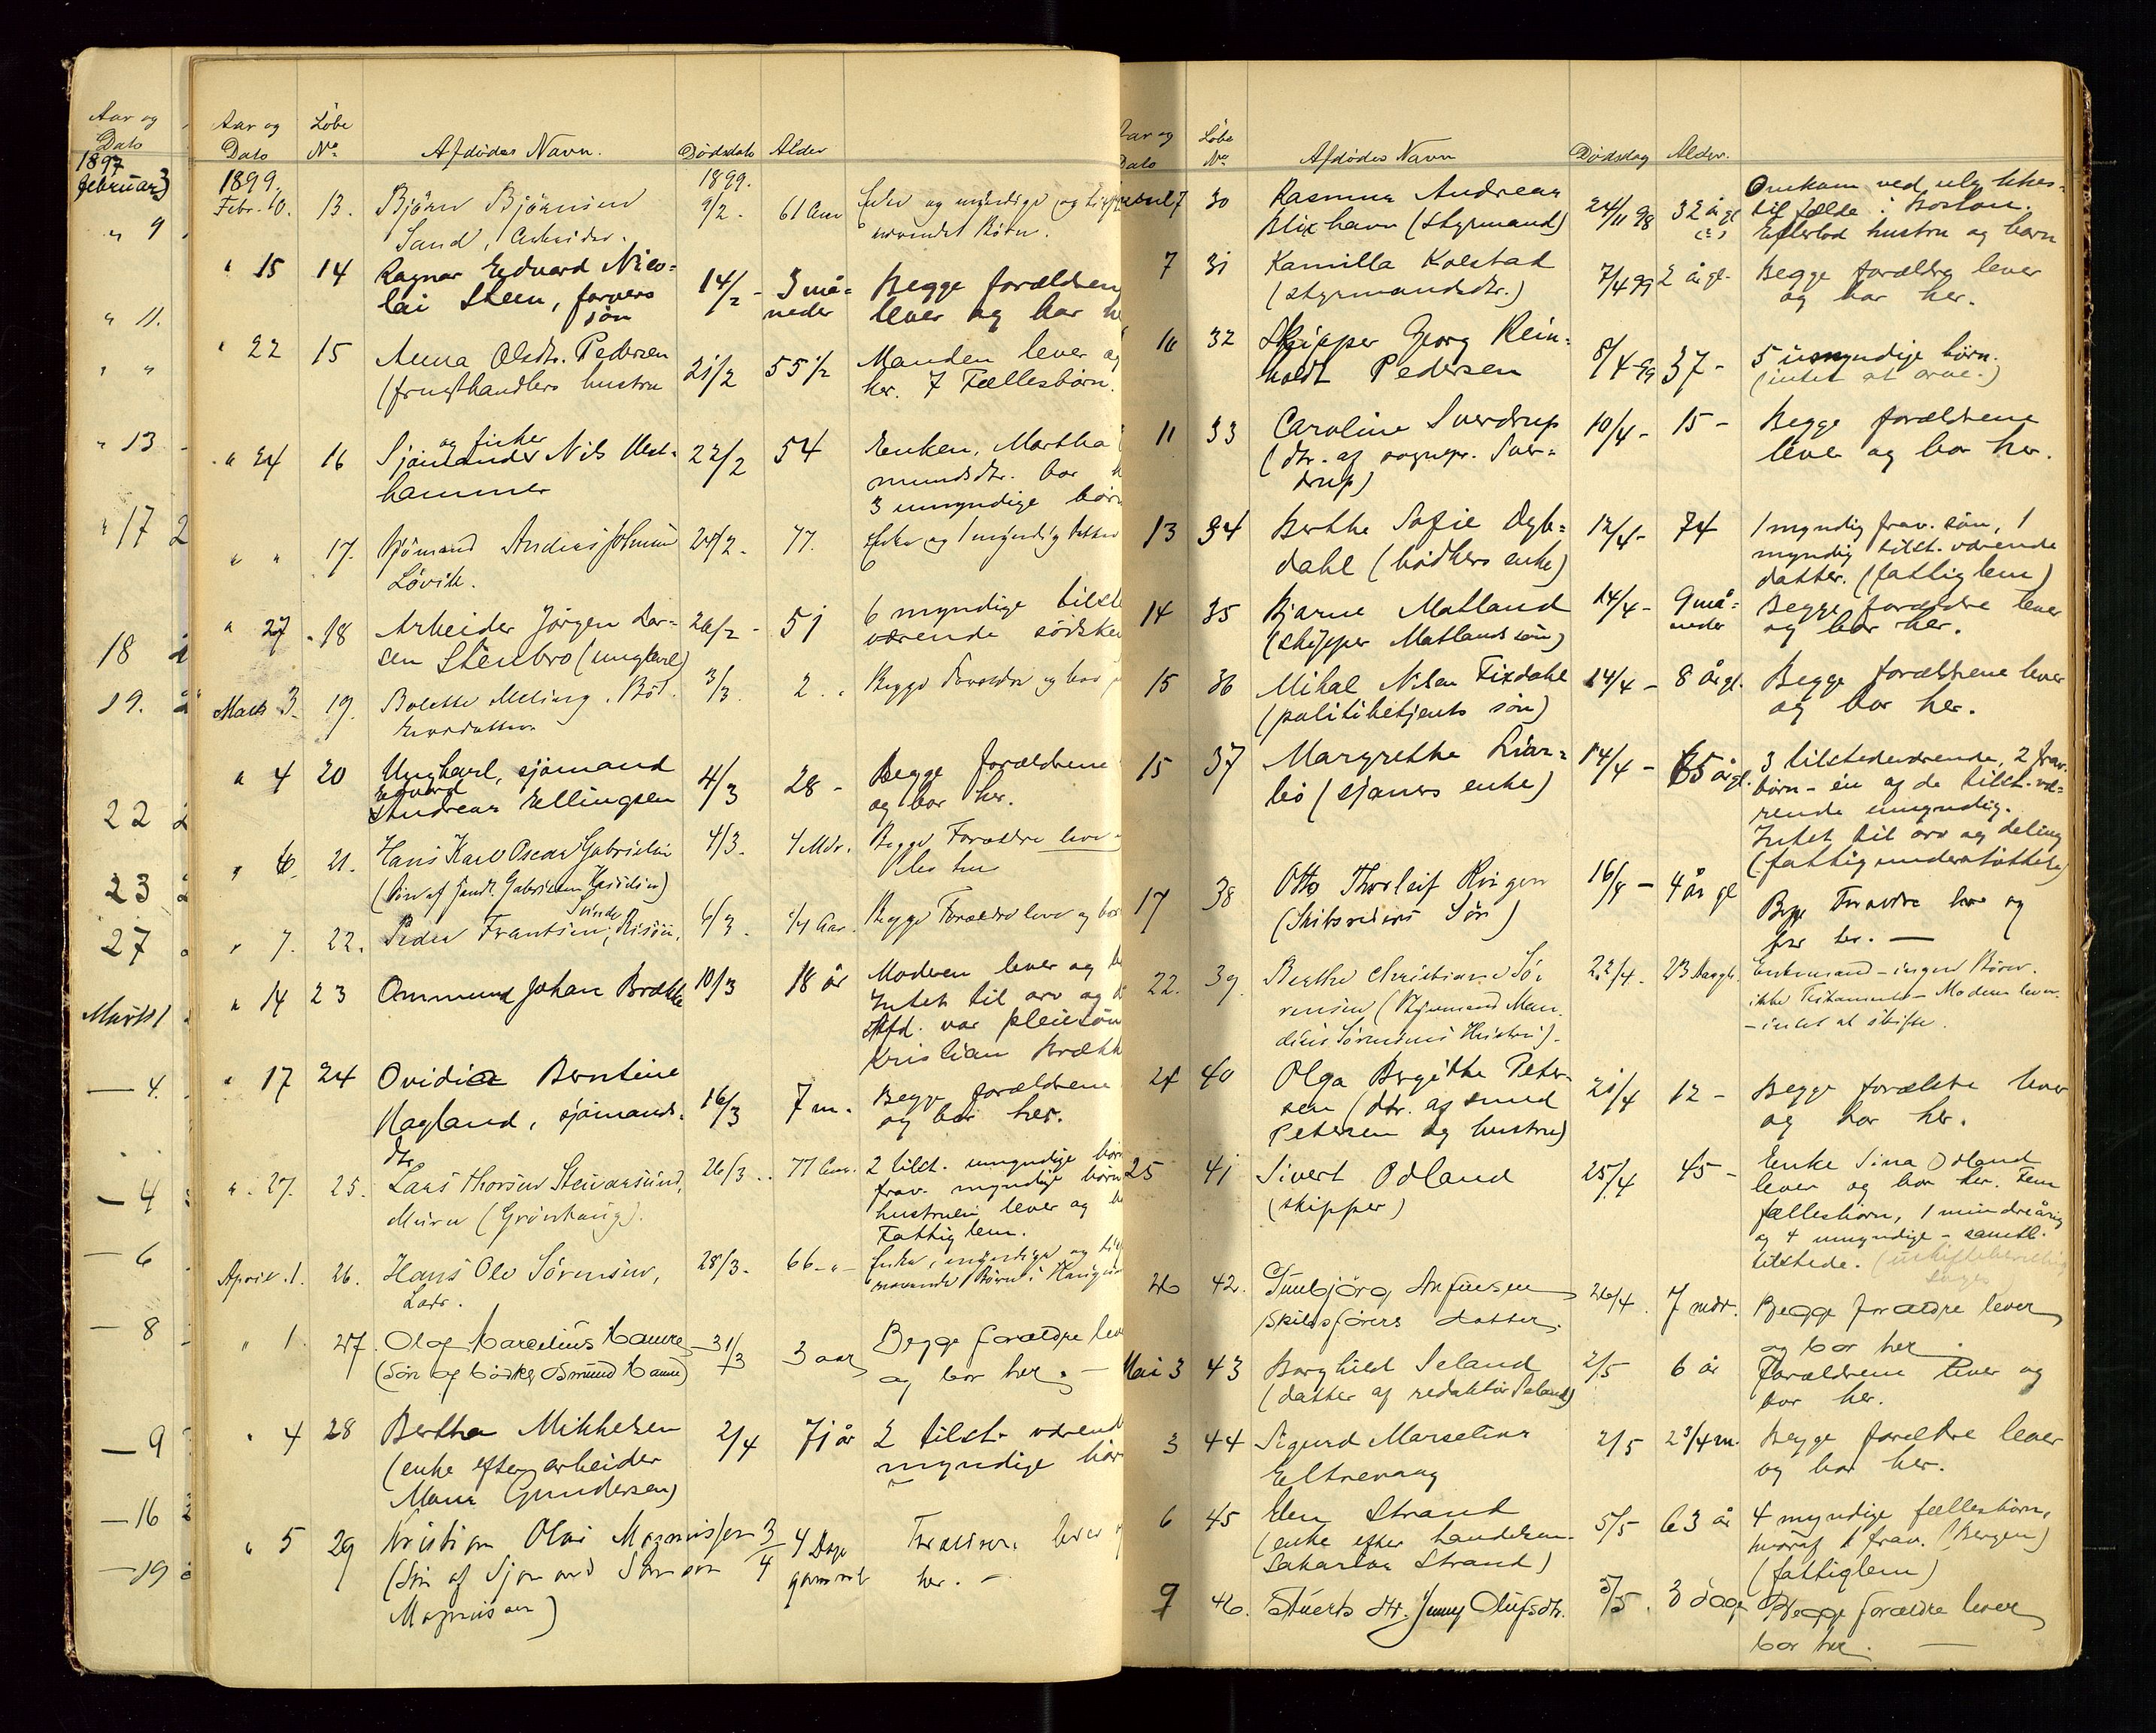 Aar og
Dato
1897
februar 3
" 9
" 11.
" "
" 13
" 17 2
18
19.
22
23
27
Marts 1
— 4.
— 4
— 6
— 8
— 9
— 16
— 19
Aar og Dato Löbe No Afdödes Navn. Dödsdato Alder
1899. 1899.
Febr. 10. 13. Björn Björnsen 9/2. 61 Aar Enke og myndige og
Sand, Arbeider. Börn.
" 15 14 Ragnar Edvard Nico= 14/2 - 3 må= Begge forældrene
lai Steen, farvers neder lever og bor
sön
" 22 15 Anna Olsdtr. Pedersen 21/2 55 1/2 Manden lever og
(frugthandlers hustru her. 7 Fællesbörn.
og fisker
" 24 16 Sjömand Nils Vest- 22/2 54 Enken, Martha
hammer mundsdtr. bor
3 umyndige börn
" " 17. Sjömand Andreas Johnsen 24/2. 77. Enke og 1 myndig
Lövik.
" 27 18 Arbeider Jörgen Lar= 26/2 - 51 6 myndige tilste
sen Stenbro (ungkarl) værende södske
Marts 3. 19. Bolette Meling. 3/3. 2. Begge Forældre og bor
" 4 20 Ungkarl, sjömand 4/3 28 - Begge forældrene
Edvard
Andreas Ellingsen og bor her.
" 6. 21. Hans Karl Oscar Gabrielsen 4/3. 4 Mdr. Begge Forældre leve
(Sön af Gabrielsen)
" 7. 22. Peder Frantsen, 6/3. Aar. Begge Forældre leve og bor
" 14 23 Ommund Johan Brække 10/3 18 år Moderen lever og
Intet til arv og
Afd. var pleiesön
Kristian Brække
" 17 24 Ovidia Berntine 16/3 7 m. Begge forældrene
Hagland, sjömands- og bor her.
dtr.
" 27. 25. Lars Thorsen 26/3. 77 Aar. 2 tilst. umyndige börn
Murer (Grönhaug). frav. myndige börn
hustruen lever og
Fattiglem.
April 1. 26. Hans Olo Sörensen, 28/3. 66 - " - Enke, myndige og
Lods.
" 1. 27. Olaf Marcelius Hamre 31/3 3 aar Begge forældre lev
(Sön af bödker Hamre) og bor her. —
" 4 28 Bertha Mikkelsen 2/4 71 år 2 tilst. værend
(enke efter arbeider myndige bör
Mons Gundersen)
" 5 29 Kristian Olai Magnussen 3/4 4 Dage Forældre lever
(Sön af Sjömand gammel her. —
Magnussen)
Aar og Dato Löbe No Afdödes Navn Dödsdag Alder.
april 7 30 Rasmus Andreas 24/11 98 32 år gl Omkom ved ulykkes-
Blixhavn (styrmand) tilfælde i Boston.
Efterlod hustru og barn
7 31 Kamilla Kolstad 7/4 99 2 årgl. Begge forældre lever
(styrmandsdtr.) og bor her.
32 Skipper Georg Rein- 8/4 99 37 - 5 umyndige börn.
holdt Pedersen (intet at arve.)
11 33 Caroline Sverdrup 10/4 - 15 - Begge forældrene
(dtr. af sognepr. Sver= lever og bor her.
drup)
13 34 Berthe Sofie Dyb= 12/4 - 74 1 myndig frav. sön, 1
dahl (bödkers enke) myndig tilst. værende
datter. (fattiglem)
14 35 Bjarne Matland 14/4 - 9 må= Begge forældre lever
(skipper Matlands sön) neder og bor her.
15 36 Mikal Nilsen Tixdahl 14/4 - 8 årgl. Begge forældrene lever
(politibetjents sön) og bor her.
15 37 Margrethe Liar= 14/4 - 65 årgl. 3 tilstedeværende, 2 frav.
bö (sjömands enke) börn - én af de tilst. væ=
rende umyndig.
Intet til arv og deling
(fattigunderstöttelse)
17 38 Otto Thorleif Ringen 16/4 - 4 år gl Begge Forældre leve og
(Skibsreders Sön) bor her. —
22. 39. Berthe Christiane Sö- 22/4. 23 Aargl. Enkemand - ingen Börn.
rensen (Styrmand Man- ikke Testamente - Moderen lever.
dius Sörensens Hustru). - intet at skifte.
24 40 Olga Bergitte Peter- 21/4 12 - Begge forældre lever
sen (dtr. af smed og bor her.
Petersen og hustru)
25 41 Sivert Odland 25/4 45 - Enke Sina Odland
(skipper) lever og bor her. Fem
fællesbörn, 1 mindreårig
og 4 umyndige - samtl.
tilstede.
26 42. Gunbjörg Anfinsen 26/4. 7 mdr. Begge forældre lever
skibsförers datter. og bor her.
Mai 3 43 Borghild Seland 2/5 6 år Forældrene lever og
(datter af redaktör Seland) bor her.
3 44 Sigurd Marselius 2/5 2 3/4 m. Begge forældre lever
Eltrevaag og bor her.
6 45 Elen Strand 5/5 63 år 4 myndige fællesbörn,
(enke efter handelsm. hvoraf 1 frav. (Bergen)
Sakarias Strand) (fattiglem)
9 46. Stuerts dtr. Jenny Olufsdtr. 5/5. 3 dage Begge forældre lever
bor her. —